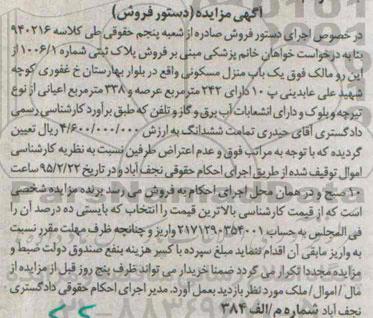 آگهی مزایده (دستور فروش)
در خصوص اجرای دستور فروش صادره از شعبه پنجم حقوقی طی کلاسه ۹۴۰۲۱۶
بنا به درخواست خواهان خانم پزشکی مبنی بر فروش پلاک ثبتی شماره ۱۰۰۶/۱ از
این رو مالک فوق یک باب منزل مسکونی واقع در بلوار بهارستان خ غفوری کوچه
شهید علی عابدینی پ ۱۰ دارای ۲۴۲ مترمربع عرصه و ۳۳۸ مترمربع اعیانی از نوع
تیرچه و بلوک و دارای انشعابات آب برق و گاز و تلفن که طبق برآورد کارشناسی رسمی
دادگستری آقای حیدری تمامت ششدانگ به ارزش ۴/۶۰۰/۰۰۰/۰۰۰ ریال تعیین
گردیده که با توجه به مراتب فوق و عدم اعتراض طرفین نسبت به نظریه کارشناسی
اموال توقیف شده از طریق اجرای احکام حقوقی نجف آباد و در تاریخ ۹۵/۲/۲۲ ساعت
۱۰ صبح و در همان محل اجرای احکام به فروش می رسد برنده مزایده شخصی
است که از قیمت کارشناسی بالاترین قیمت را انتخاب که بایستی ده درصد آن را
فی المجلس به حساب ۲۱۷۱۲۹۰۳۵۴۰۰۱ واریز و چنانچه ظرف مهلت مقرر نسبت
به واریز مابقی آن اقدام ننماید مبلغ سپرده با کسر هزینه بنفع صندوق دولت ضبط و
مزایده مجددا تکرار می گردد ضمنا خریدار می تواند ظرف پنج روز قبل از مزایده از
مال / اموال / ملک مورد نظر بازدید بعمل آورد. مدیر اجرای احکام حقوقی دادگستری
نجف آباد شماره م/الف ۳۸۴